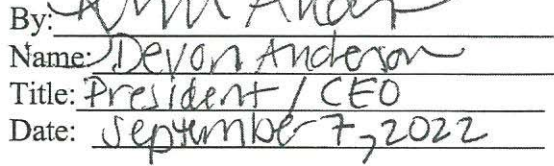 By:
Name: Devon Anderson
Title: President / CEO
Date: September 7, 2022